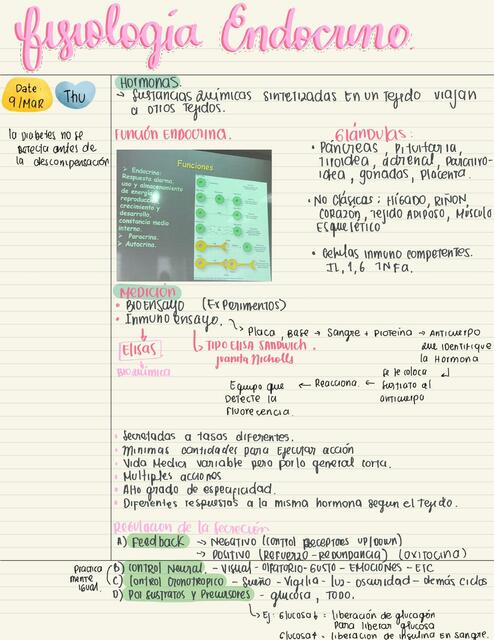 fisiología Endocrino.
Date
9/MAR
Thu
Hormonas.
→ Sustancias químicas sintetizadas en un tejido viajan
a otios tejidos.
la diabetes no se
detecta antes de
la descompensación
Función Endocrina.
Glándulas:
Funciones
➢ Endocrino:
Respuesta alarma,
uso y almacenamiento
de energía
reproducc
crecimiento y
desarrollo,
constancia medio
interno.
➢ Paracrino.
➢ Autocrino.
• Páncreas, Pituitaria,
Tiroidea, adrenal, Paratiro-
idea, gonadas, placenta.
• No Clásicas: Hígado, Riñon,
Corazón, Tejido Adiposo, Músculo
Esquelético
• Celulas inmuno competentes.
IL, 1, 6 TNFa.
Medición
• Bioensayo (Experimentos)
• Inmunoensayo.
↳ Placa, Base → Sangre + Proteína → Anticuerpo
que identifique
la Hormona
Elisas
Bioquímica
↳ Tipo Elisa Sandwich.
Juanita Nicholls
se le coloca
Sustrato al
anticuerpo
← Reacciona. ←
Equipo que
detecte la
fluorecencia.
• Secretadas a tasas diferentes.
• Minimas cantidades para Ejecutar acción
• Vida Media variable pero por lo general corta.
• Multiples acciones
• Alto grado de especificidad.
• Diferentes respuestas a la misma hormona segun el Tejido.
Regulacion de la secreción
A) Feedback → Negativo (Control Receptores up/down)
→ Positivo (Refuerzo - redundancia) (oxitocina)
Practica
mente
igual.
B) Control Neural. - Visual - Olfatorio - Gusto - Emociones - Etc
C) Control Cronotropico - Sueño - Vigilia - luz - oscuridad - demás ciclos
D) Por Sustratos y Precursores - glucosa, TODO.
↳ Ej: Glucosa↓ = liberación de glucagón
para liberar glucosa
Glucosa↑ = liberación de insulina en sangre.